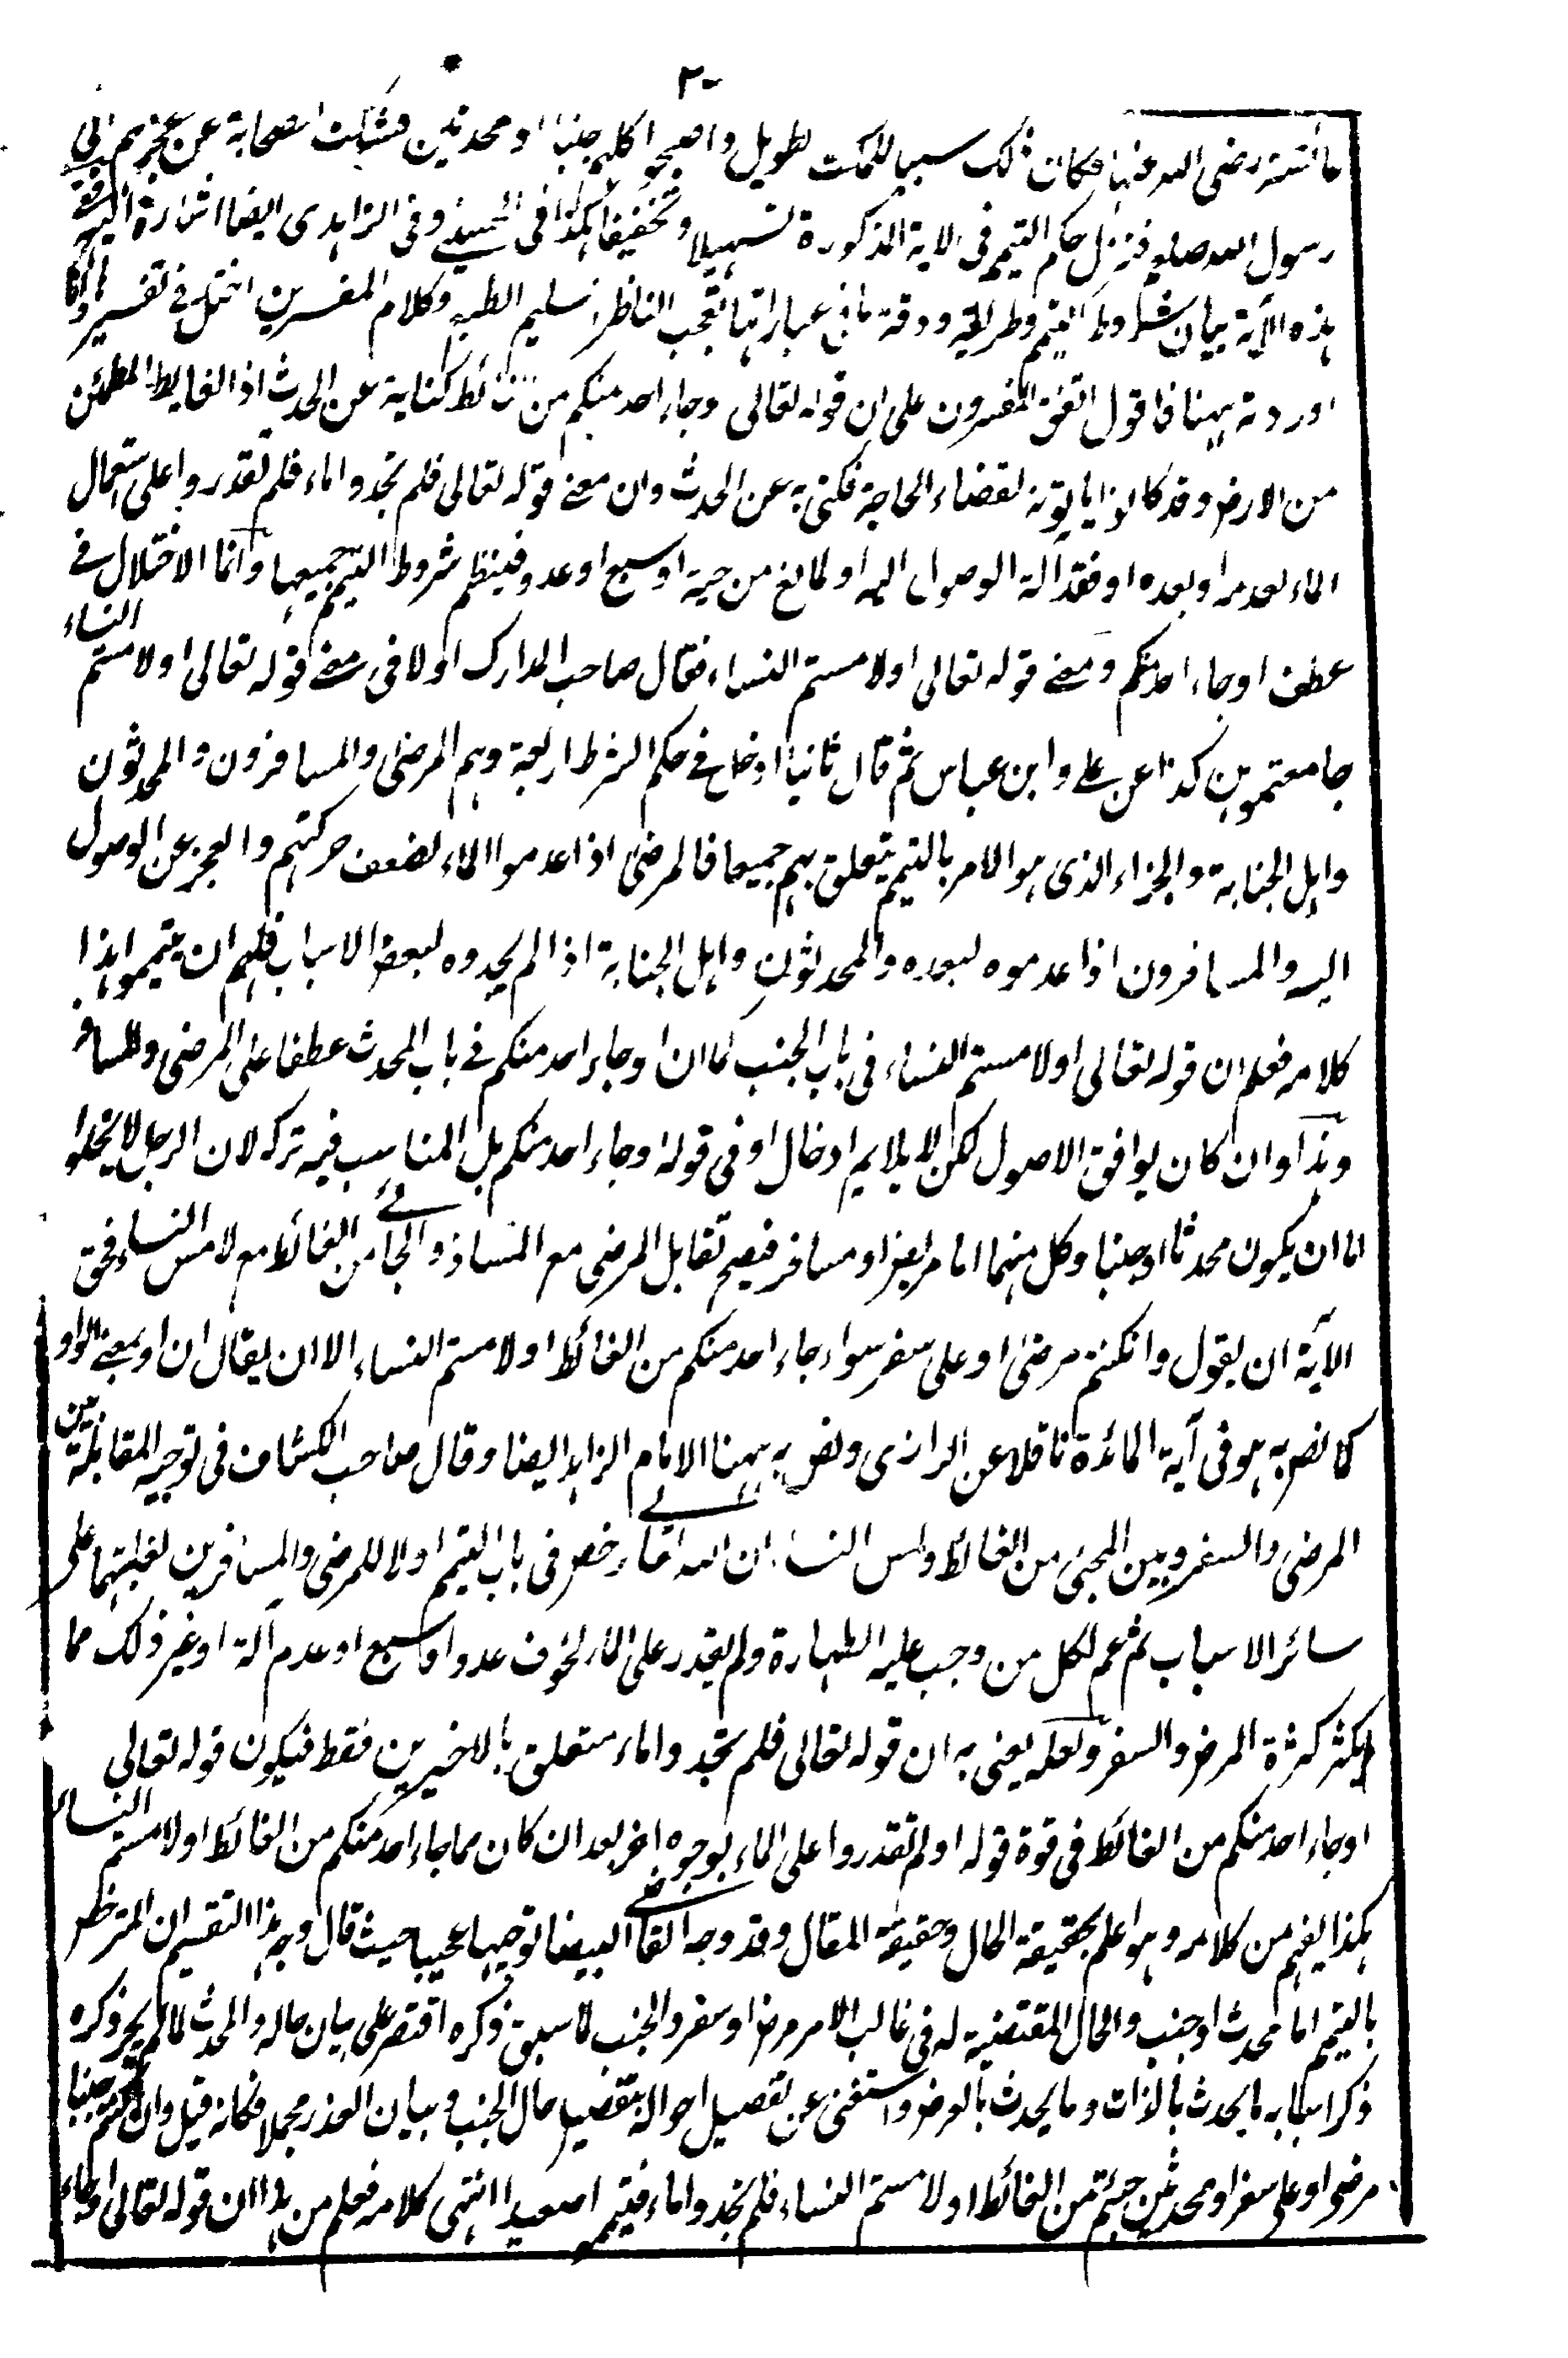 ٢٠
عائشة رضى الله عنها فكان ذلك سببا للمكث طويل واصبح اكلهم جنبا او محدثين فشكت الصحابة عن عجزهم الى
رسول الله صلعم فنزل حكم التيمم فى الاية المذكورة تسهيلا وتخفيفا هكذا فى الحسينى وفى الزاهدى ايضا اشارة اليه وفى
هذه الآية بيان شروط التيمم وطريقه ودقة ما فى عباراتها تعجب الناظر سليم الطبع وكلام المفسرين اختل فى تفسيرها وانا
اوردته ههنا فاقول اتفق المفسرون على ان قوله تعالى وجاء احد منكم من الغائط كناية عن الحدث اذ الغايط المطمئن
من الارض وقد كانوا ياتونه لقضاء الحاجة فكنى به عن الحدث وان معنى قوله تعالى فلم تجدوا ماء فلم تقدروا على استعمال
الماء لعدمه او بعده او فقد آلة الوصول اليه او لمانع من حية او سبع او عدو فينظم شروط التيمم جميعها وانما الاختلال فى
عطف او جاء احد منكم ومعنى قوله تعالى او لامستم النساء فقال صاحب المدارك اولا فى معنى قوله تعالى او لامستم النساء
جامعتموهن كذا عن على وابن عباس ثم قال ثانيا ادخل فى حكم الشرط اربعة وهم المرضى والمسافرون والمحدثون
واهل الجنابة والجزاء الذى هو الامر بالتيمم يتعلق بهم جميعا فالمرضى اذا عدموا الماء لضعف حركتهم والعجز عن الوصول
اليه والمسافرون اذا عدموه لبعده والمحدثون واهل الجنابة اذا لم يجدوه لبعض الاسباب فلهم ان يتيمموا هذا
كلامه فعلم ان قوله تعالى او لامستم النساء فى باب الجنب كما ان او جاء احد منكم فى باب المحدث عطفا على المرضى والمسافر
وهذا وان كان يوافق الاصول لكن لا يلايم ادخال او فى قوله او جاء احد منكم بل المناسب فيه تركه لان الرجل لا يخلوا
اما ان يكون محدثا او جنبا وكل منهما اما مريض او مسافر فيصح تقابل المرضى مع المسافر والجائى من الغائط مع لامس النساء فحق
الآية ان يقول وان كنتم مرضى او على سفر سواء جاء احد منكم من الغائط او لامستم النساء الا ان يقال ان او بمعنى الواو
كما نص به هو فى آية المائدة ناقلا عن الرازى ونص به ههنا الامام الزاهد ايضا وقال صاحب الكشاف فى توجيه المقابلة بين
المرضى والسفر وبين المجئ من الغائط ولمس النساء ان الله تعالى رخص فى باب التيمم اولا للمرضى والمسافرين لغلبتهما على
سائر الاسباب ثم عمم لكل من وجب عليه الطهارة ولم يقدر على الماء لخوف عدو او سبع او عدم آلة او غير ذلك مما
لم يكثر كثرة المرض والسفر ولعله يعنى به ان قوله تعالى فلم تجدوا ماء متعلق بالاخيرين فقط فيكون قوله تعالى
او جاء احد منكم من الغائط فى قوة قوله او لم تقدروا على الماء بوجوه اخر بعد ان كان مما جاء احد منكم من الغائط او لامستم النساء
هكذا يفهم من كلامه وهو اعلم بحقيقة الحال وحقيقة المقال وقد وجه القاضى البيضا توجيها عجيبا حيث قال وجه هذا التقسيم ان المترخص
بالتيمم اما محدث او جنب والحال المقتضية له فى غالب الامر مرض او سفر والجنب لما سبق ذكره اقتصر على بيان حاله والمحدث لما لم يجر ذكره
ذكر اسبابه ما يحدث بالذات وما يحدث بالعرض واستغنى عن تفصيل احواله بتفصيل حال الجنب وبيان العذر مجملا فكانه قيل وان كنتم جنبا
مرضى او على سفر او محدثين جئتم من الغائط او لامستم النساء فلم تجدوا ماء فتيمموا صعيدا انتهى كلامه فعلم من هذا ان قوله تعالى او جاء